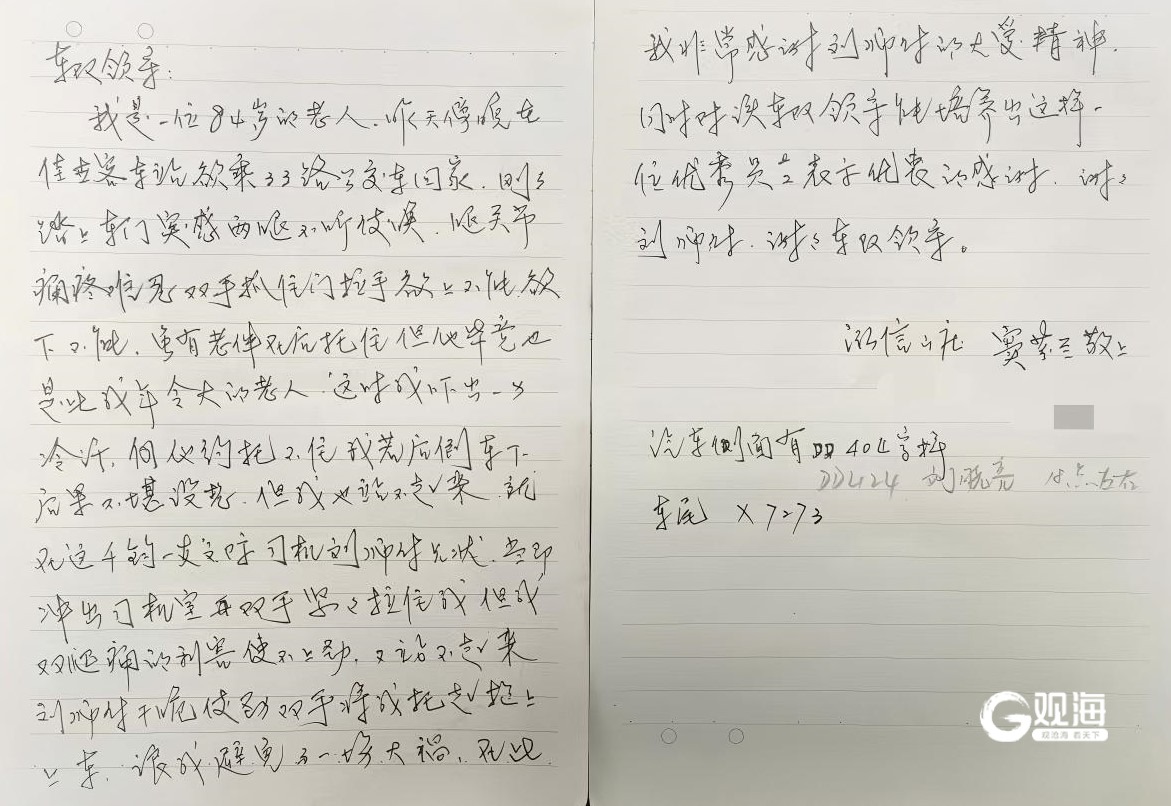 车队领导:
我是一位84岁的老人.昨天傍晚在
佳世客车站欲乘33路公交车回家.刚刚
踏上车门突感两腿不听使唤.腿关节
痛疼难忍双手抓住门拉手欲上不能欲
下不能.虽有老伴在后托住但他毕竟也
是比我年令大的老人.这时我吓出一身
冷汗.何仪约托不住我若后倒车下
后果不堪设想.但我也站不起来.就
在这千钧一发之时司机刘师付见状.当即
冲出司机室用双手紧紧拉住我但我
双腿痛的利害使不上劲.又站不起来
刘师付干脆使劲双手将我托起抱上
上车.让我避免了一场大祸.在此
我非常感谢刘师付的大爱精神.
同时对该车队领导能培养出这样一
位优秀员工表示优衷的感谢.谢谢
刘师付.谢谢车队领导。
海信小区 窦紫兰敬上
汽车侧面有DD404字样
DD424 刘晓亮 18点左右
车尾 X7273
观海
观沧海 看天下